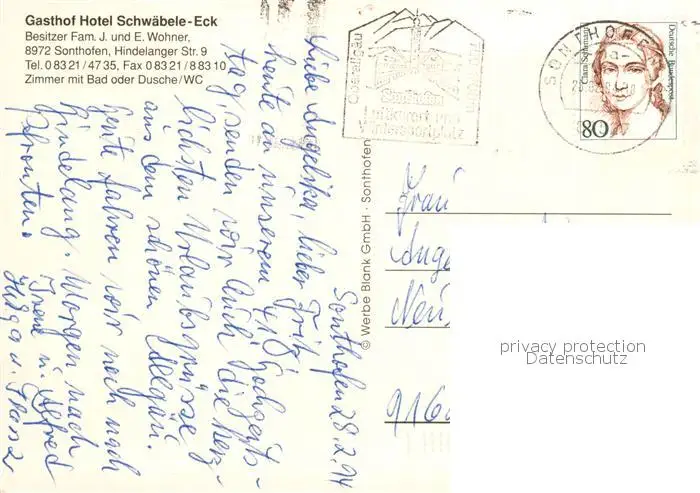 Gasthof Hotel Schwäbele-Eck
Besitzer Fam. J. und E. Wohner,
8972 Sonthofen, Hindelanger Str. 9
Tel. 0 83 21 / 47 35, Fax 0 83 21 / 8 83 10
Zimmer mit Bad oder Dusche / WC
Sonthofen 28.2.94
Liebe Angelika, lieber Fritz
heute an unserem 48 Hochzeits-
tag senden wir Euch die herz-
lichsten Urlaubsgrüsse
aus dem schönen Allgäu.
Heute fahren wir noch nach
Hindelang. Morgen nach
Pfronten.
Irene u. Alfred
Helga u. Franz
© Werbe Blank GmbH · Sonthofen
Oberallgäu
Sonthofen
Luftkurort und
Wintersportplatz
SONTHOFEN
Clara Schumann
Deutsche Bundespost
80
Frau
Ange
Neu
916
privacy protection
Datenschutz